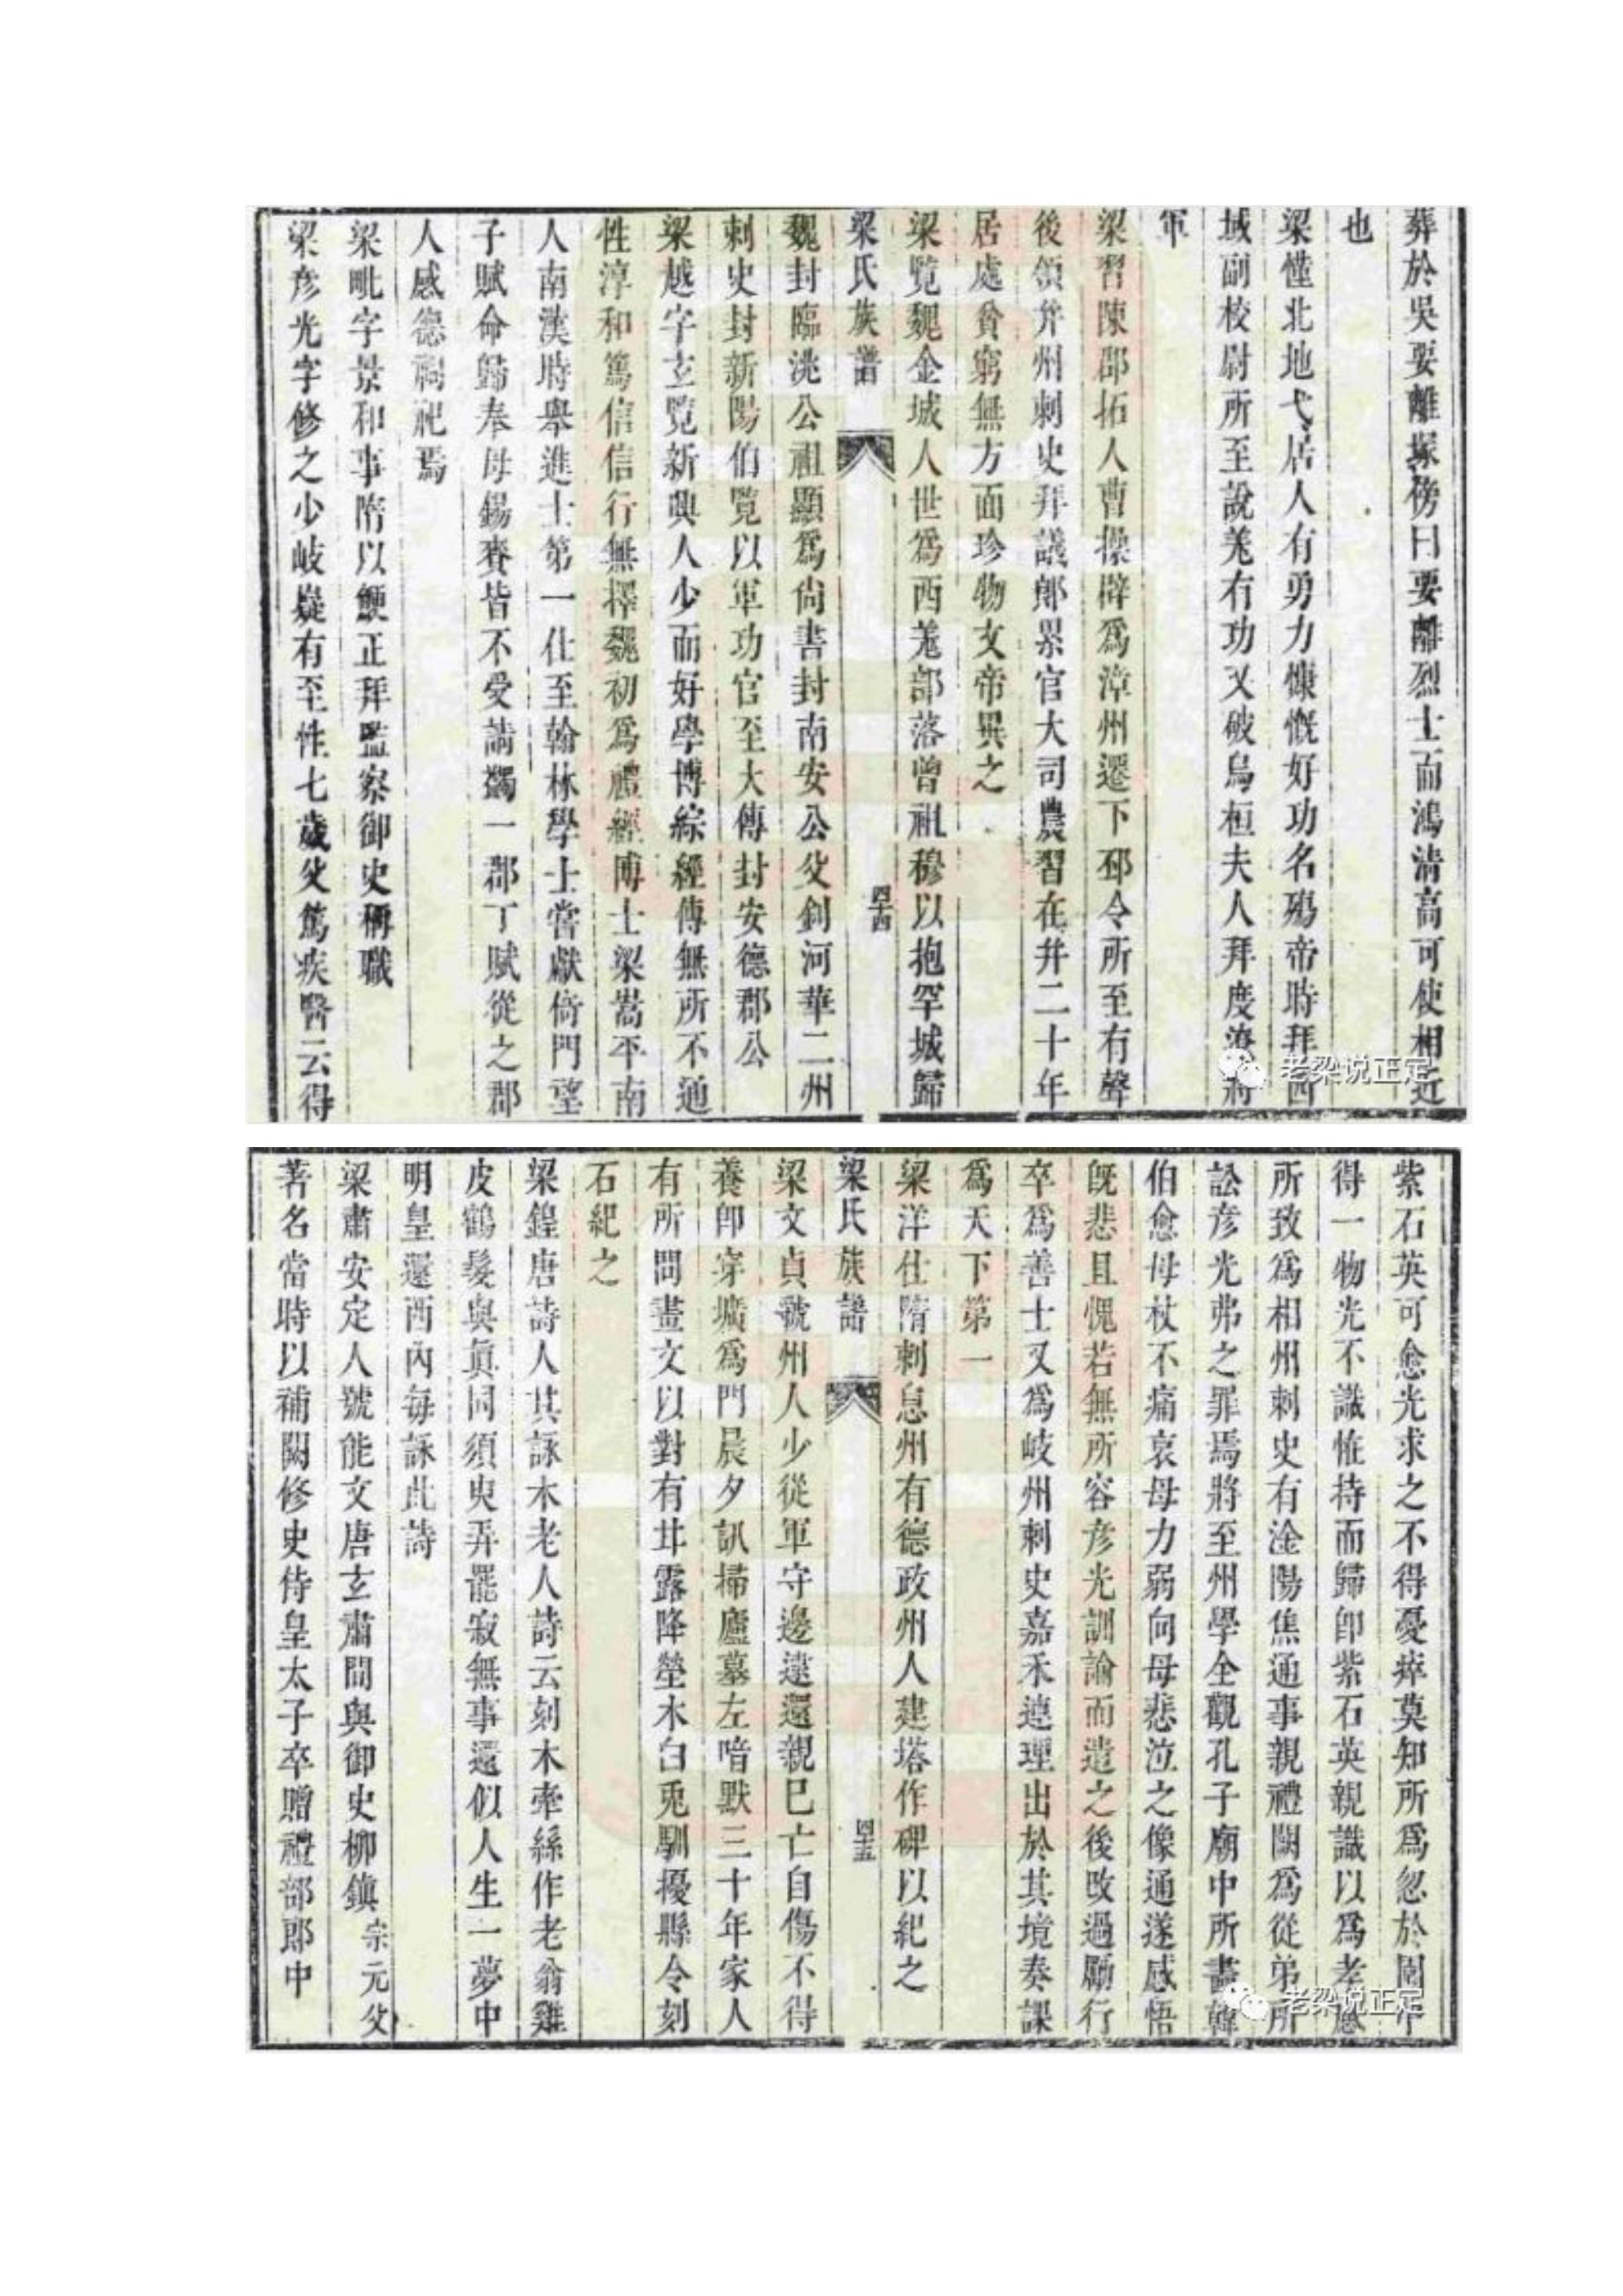 葬於吳要離塚傍曰要離烈士而鴻清高可使相近
也
梁慬北地弋居人有勇力慷慨好功名殤帝時拜西
域副校尉所至說羗有功又破烏桓夫人拜度遼將
軍
梁習陳郡拓人曹操辟爲漳州遷下邳令所至有聲
後領并州刺史拜議郎累官大司農習在并二十年
居處貧窮無方面珍物文帝異之
梁覽魏金城人世爲西羗部落曾祖穆以抱罕城歸
梁氏族譜
四十四
魏封臨洮公祖顯爲尙書封南安公父釗河華二州
刺史封新陽伯覽以軍功官至大傳封安德郡公
梁越字玄覽新興人少而好學博綜經傳無所不通
性淳和篤信信行無擇魏初爲禮經博士梁嵩平南
人南漢時舉進士第一仕至翰林學士嘗獻倚門望
子賦命歸奉母錫賚皆不受請蠲一郡丁賦從之郡
人感德祠祀焉
梁毗字景和事隋以鯁正拜監察御史稱職
梁彥光字修之少岐嶷有至性七歲父篤疾醫云得
老梁说正定
紫石英可愈光求之不得憂瘁莫知所爲忽於園中
得一物光不識恠持而歸卽紫石英親識以爲孝感
所致爲相州刺史有淦陽焦通事親禮闕爲從弟所
訟彥光弗之罪焉將至州學令觀孔子廟中所畫韓
伯愈母杖不痛哀母力弱向母悲泣之像通遂感悟
旣悲且愧若無所容彥光訓諭而遣之後改過勵行
卒爲善士又爲岐州刺史嘉禾連理出於其境奏課
爲天下第一
梁洋仕隋刺息州有德政州人建塔作碑以紀之
梁氏族譜
四十五
梁文貞虢州人少從軍守邊逮還親已亡自傷不得
養卽穿壙爲門晨夕訊掃廬墓左喑默三十年家人
有所問畫文以對有甘露降塋木白兎馴擾縣令刻
石紀之
梁鍠唐詩人其詠木老人詩云刻木牽絲作老翁雞
皮鶴髮與眞同須臾弄罷寂無事還似人生一夢中
明皇還西內每詠此詩
梁肅安定人號能文唐玄肅間與御史柳鎭宗元父
著名當時以補闕修史侍皇太子卒贈禮部郎中
老梁说正定